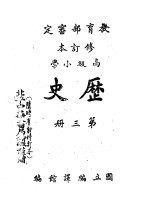 教育部審定
修訂本
高級小學
歷史
第三册
國立編譯館編